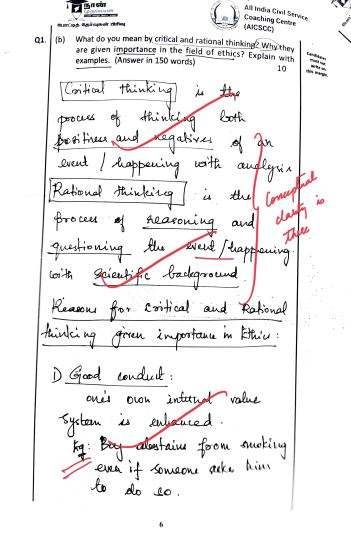 நான்
முதல்வன்
All India Civil Service
Coaching Centre
(AICSCC)
Q1. (b) What do you mean by critical and rational thinking? Why they
are given importance in the field of ethics? Explain with
examples. (Answer in 150 words)
10
Candidates
must not
write on
this margin.
Critical thinking is the
process of thinking both
positives and negatives of an
event / happening with analysis
Rational thinking is the
process of reasoning and
questioning the event / happening
with scientific background
Conceptual
clarity is
there
Reasons for critical and Rational
thinking given importance in Ethics:
1) Good conduct:
one's own internal value
system is enhanced.
Eg: Boy abstains from smoking
even if someone asks him
to do so.
6